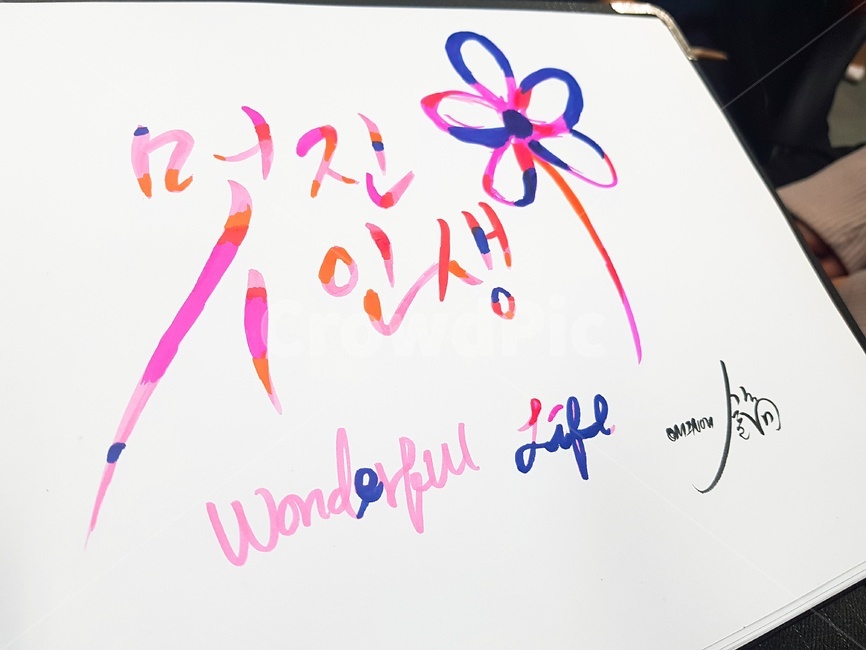 멋진
인생
Wonderful Life
CrowdPic